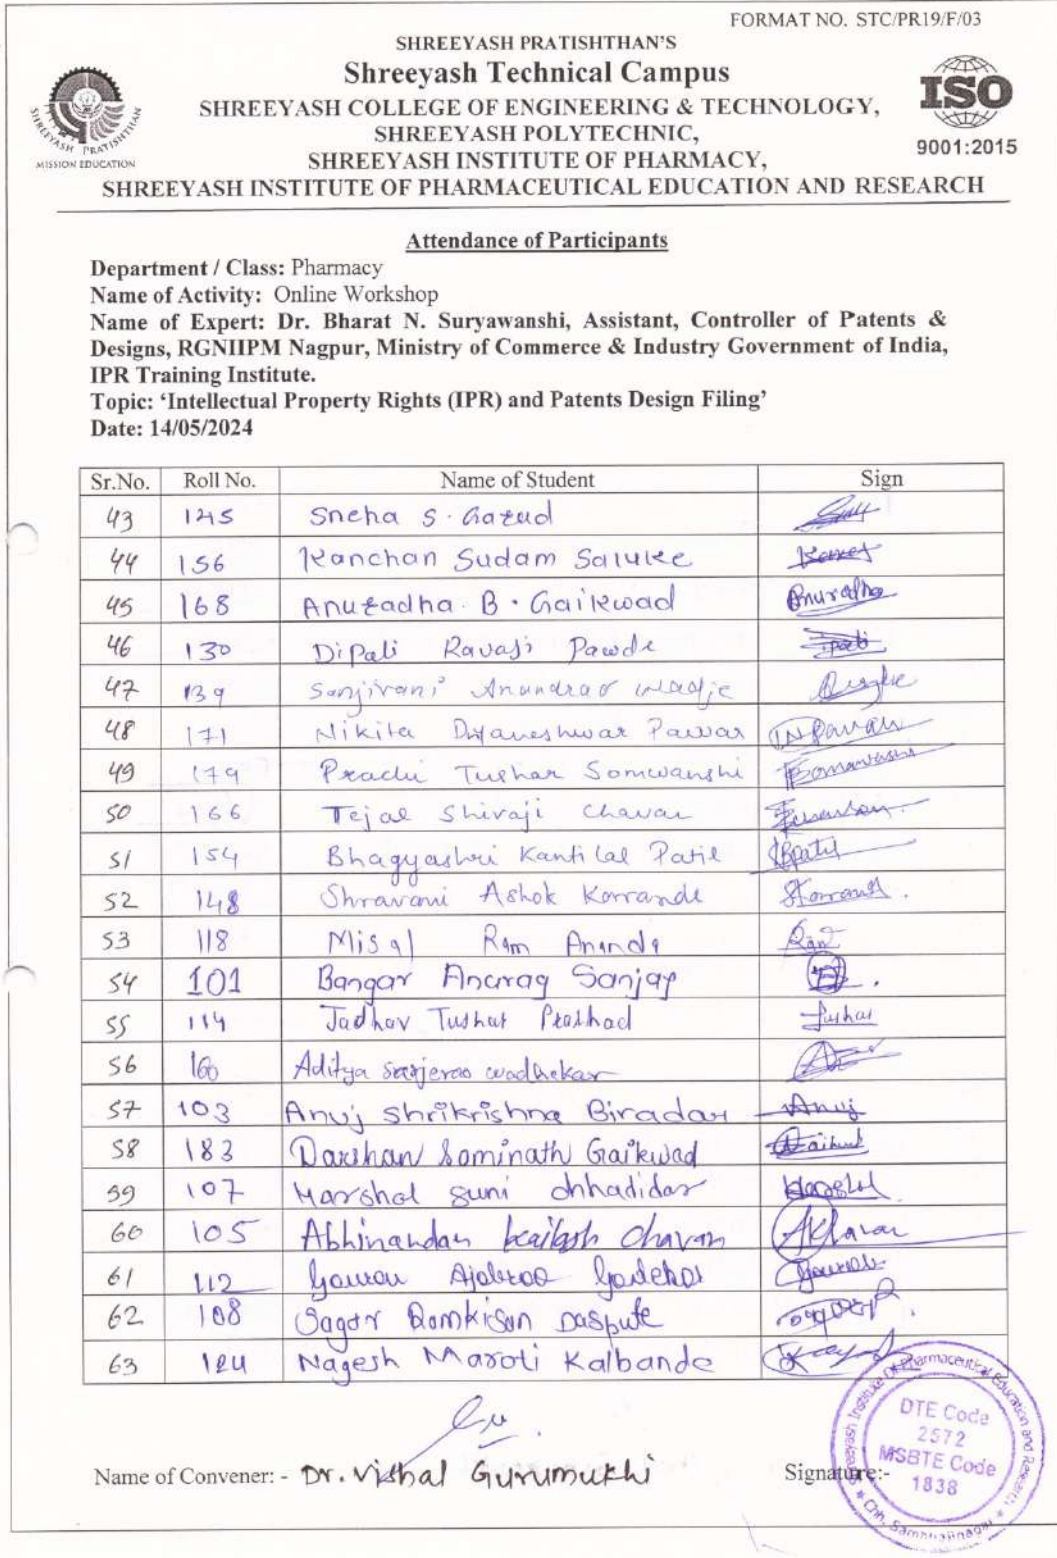 FORMAT NO. STC/PR19/F/03
SHREEYASH PRATISHTHAN'S
Shreeyash Technical Campus
SHREEYASH COLLEGE OF ENGINEERING & TECHNOLOGY,
SHREEYASH POLYTECHNIC,
SHREEYASH INSTITUTE OF PHARMACY,
SHREEYASH INSTITUTE OF PHARMACEUTICAL EDUCATION AND RESEARCH
SHREEYASH PRATISHTHAN
MISSION EDUCATION
ISO
9001:2015
Attendance of Participants
Department / Class: Pharmacy
Name of Activity: Online Workshop
Name of Expert: Dr. Bharat N. Suryawanshi, Assistant, Controller of Patents &
Designs, RGNIIPM Nagpur, Ministry of Commerce & Industry Government of India,
IPR Training Institute.
Topic: ‘Intellectual Property Rights (IPR) and Patents Design Filing’
Date: 14/05/2024
Sr.No. Roll No. Name of Student Sign
43 145 Sneha S. Garud
44 156 Kanchan Sudam Saluke
45 168 Anuradha B. Gaikwad Anuradha
46 130 Dipali Ravaji Pawde Dipali
47 139 Sanjivani Anandrao
48 171 Nikita Dnyaneshwar Pawar NPawar
49 179 Prachi Tushar Somwanshi
50 166 Tejal Shivaji Chavan
51 154 Bhagyashri Kantilal Patil BPatil
52 148 Shravani Ashok Korrande
53 118 Misal Ram Ananda Ram
54 101 Bangar Anurag Sanjay
55 114 Jadhav Tushar Prashad Tushar
56 160 Aditya Sarjerao wadhekar
57 103 Anuj Shrikrishna Biradar Anuj
58 183 Darshan Sominath Gaikwad
59 107 Harshal suni chhadidar Harshal
60 105 Abhinandan kailash chavan AKChavan
61 112 Gaurav Ajabrao Gaurav
62 108 Sagar Ramkisan Daspute
63 124 Nagesh Maroti Kalbande
Name of Convener: - Dr. Vishal Gurumukhi Signature:-
Shreeyash Institute Of Pharmaceutical Education and Research
DTE Code
2572
MSBTE Code
1838
Chh. Sambhajinagar